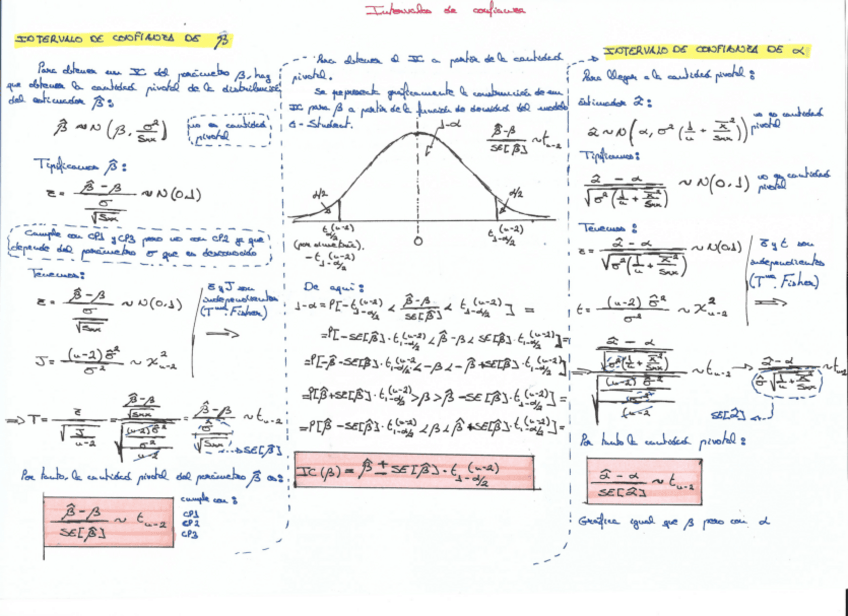 Intervalos de confianza
INTERVALO DE CONFIANZA DE β̂
Para obtener un IC del parámetro β, hay
que obtener la cantidad pivotal de la distribución
del estimador β̂:
β̂ ≈ N(β, σ²/Sxx)
no es cantidad
pivotal
Tipificamos β̂:
z = (β̂ - β)/(σ/√Sxx) ~ N(0,1)
Cumple con CP1 y CP3 pero no con CP2 ya que
depende del parámetro σ que es desconocido
Tenemos:
z = (β̂ - β)/(σ/√Sxx) ~ N(0,1)
J = (n-2)σ̂²/σ² ~ χ²n-2
z y J son
independientes
(Tma. Fisher)
⟹
⟹ T = z/√(J/(n-2)) = ((β̂ - β)/(σ/√Sxx))/√((n-2)σ̂²/σ²/(n-2)) = (β̂ - β)/(σ̂/√Sxx) ~ tn-2
SE[β̂]
Por tanto, la cantidad pivotal del parámetro β̂ es:
(β̂ - β)/SE[β̂] ~ tn-2
cumple con:
CP1
CP2
CP3
Para obtener el IC a partir de la cantidad
pivotal.
Se representa gráficamente la construcción de un
IC para β a partir de la función de densidad del modelo
t-Student.
1-α
(β̂ - β)/SE[β̂] ~ tn-2
α/2
α/2
tα/2(n-2)
0
t1-α/2(n-2)
(por simetría),
-t1-α/2(n-2)
De aquí:
1-α = P[-t1-α/2(n-2) < (β̂ - β)/SE[β̂] < t1-α/2(n-2)] =
= P[-SE[β̂]·t1-α/2(n-2) < β̂ - β < SE[β̂]·t1-α/2(n-2)] =
= P[-β̂ - SE[β̂]·t1-α/2(n-2) < -β < -β̂ + SE[β̂]·t1-α/2(n-2)] =
= P[β̂ + SE[β̂]·t1-α/2(n-2) > β > β̂ - SE[β̂]·t1-α/2(n-2)] =
= P[β̂ - SE[β̂]·t1-α/2(n-2) < β < β̂ + SE[β̂]·t1-α/2(n-2)] =
IC(β) = β̂ ± SE[β̂]·t1-α/2(n-2)
INTERVALO DE CONFIANZA DE α
Para llegar a la cantidad pivotal:
Estimador α̂:
α̂ ~ N(α, σ²(1/n + x̄²/Sxx))
no es cantidad
pivotal
Tipificamos:
(α̂ - α)/√(σ²(1/n + x̄²/Sxx)) ~ N(0,1)
no es cantidad
pivotal
Tenemos:
z = (α̂ - α)/√(σ²(1/n + x̄²/Sxx)) ~ N(0,1)
t = (n-2)σ̂²/σ² ~ χ²n-2
z y t son
independientes
(Tma. Fisher)
⟹
⟹ ((α̂ - α)/√(σ²(1/n + x̄²/Sxx)))/√((n-2)σ̂²/σ²/(n-2)) ~ tn-2 → (α̂ - α)/(σ̂√(1/n + x̄²/Sxx)) ~ tn-2
SE[α̂]
Por tanto la cantidad pivotal:
(α̂ - α)/SE[α̂] ~ tn-2
Gráfica igual que β pero con α